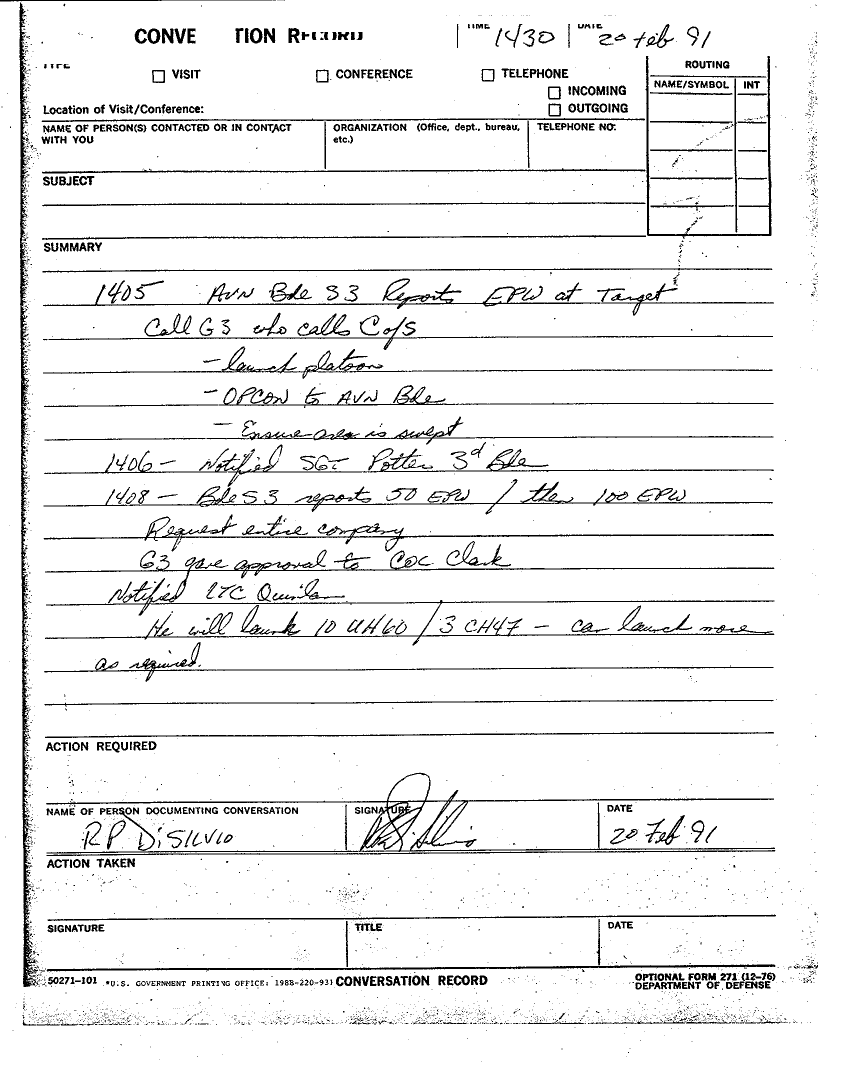 CONVE TION RECORD
TIME 1430 DATE 20 Feb 91
TYPE
ROUTING
VISIT CONFERENCE TELEPHONE
NAME/SYMBOL INT
INCOMING
Location of Visit/Conference: OUTGOING
NAME OF PERSON(S) CONTACTED OR IN CONTACT WITH YOU
ORGANIZATION (Office, dept., bureau, etc.)
TELEPHONE NO:
SUBJECT
SUMMARY
1405 AVN Bde S3 Reports EPW at Target
Call G3 who calls C of S
- launch platoon
- OPCON to AVN Bde
- Ensure area is swept
1406 - Notified SGT Potter 3d Bde
1408 - Bde S3 reports 50 EPW / then 100 EPW
Request entire company
G3 gave approval to COC Clark
Notified LTC Quinlan
He will launch 10 UH60 / 3 CH47 - can launch more
as required.
ACTION REQUIRED
NAME OF PERSON DOCUMENTING CONVERSATION
SIGNATURE
DATE
RP DiSILVIO
20 Feb 91
ACTION TAKEN
SIGNATURE TITLE DATE
50271-101 *U.S. GOVERNMENT PRINTING OFFICE: 1988-220-931 CONVERSATION RECORD
OPTIONAL FORM 271 (12-76)
DEPARTMENT OF DEFENSE